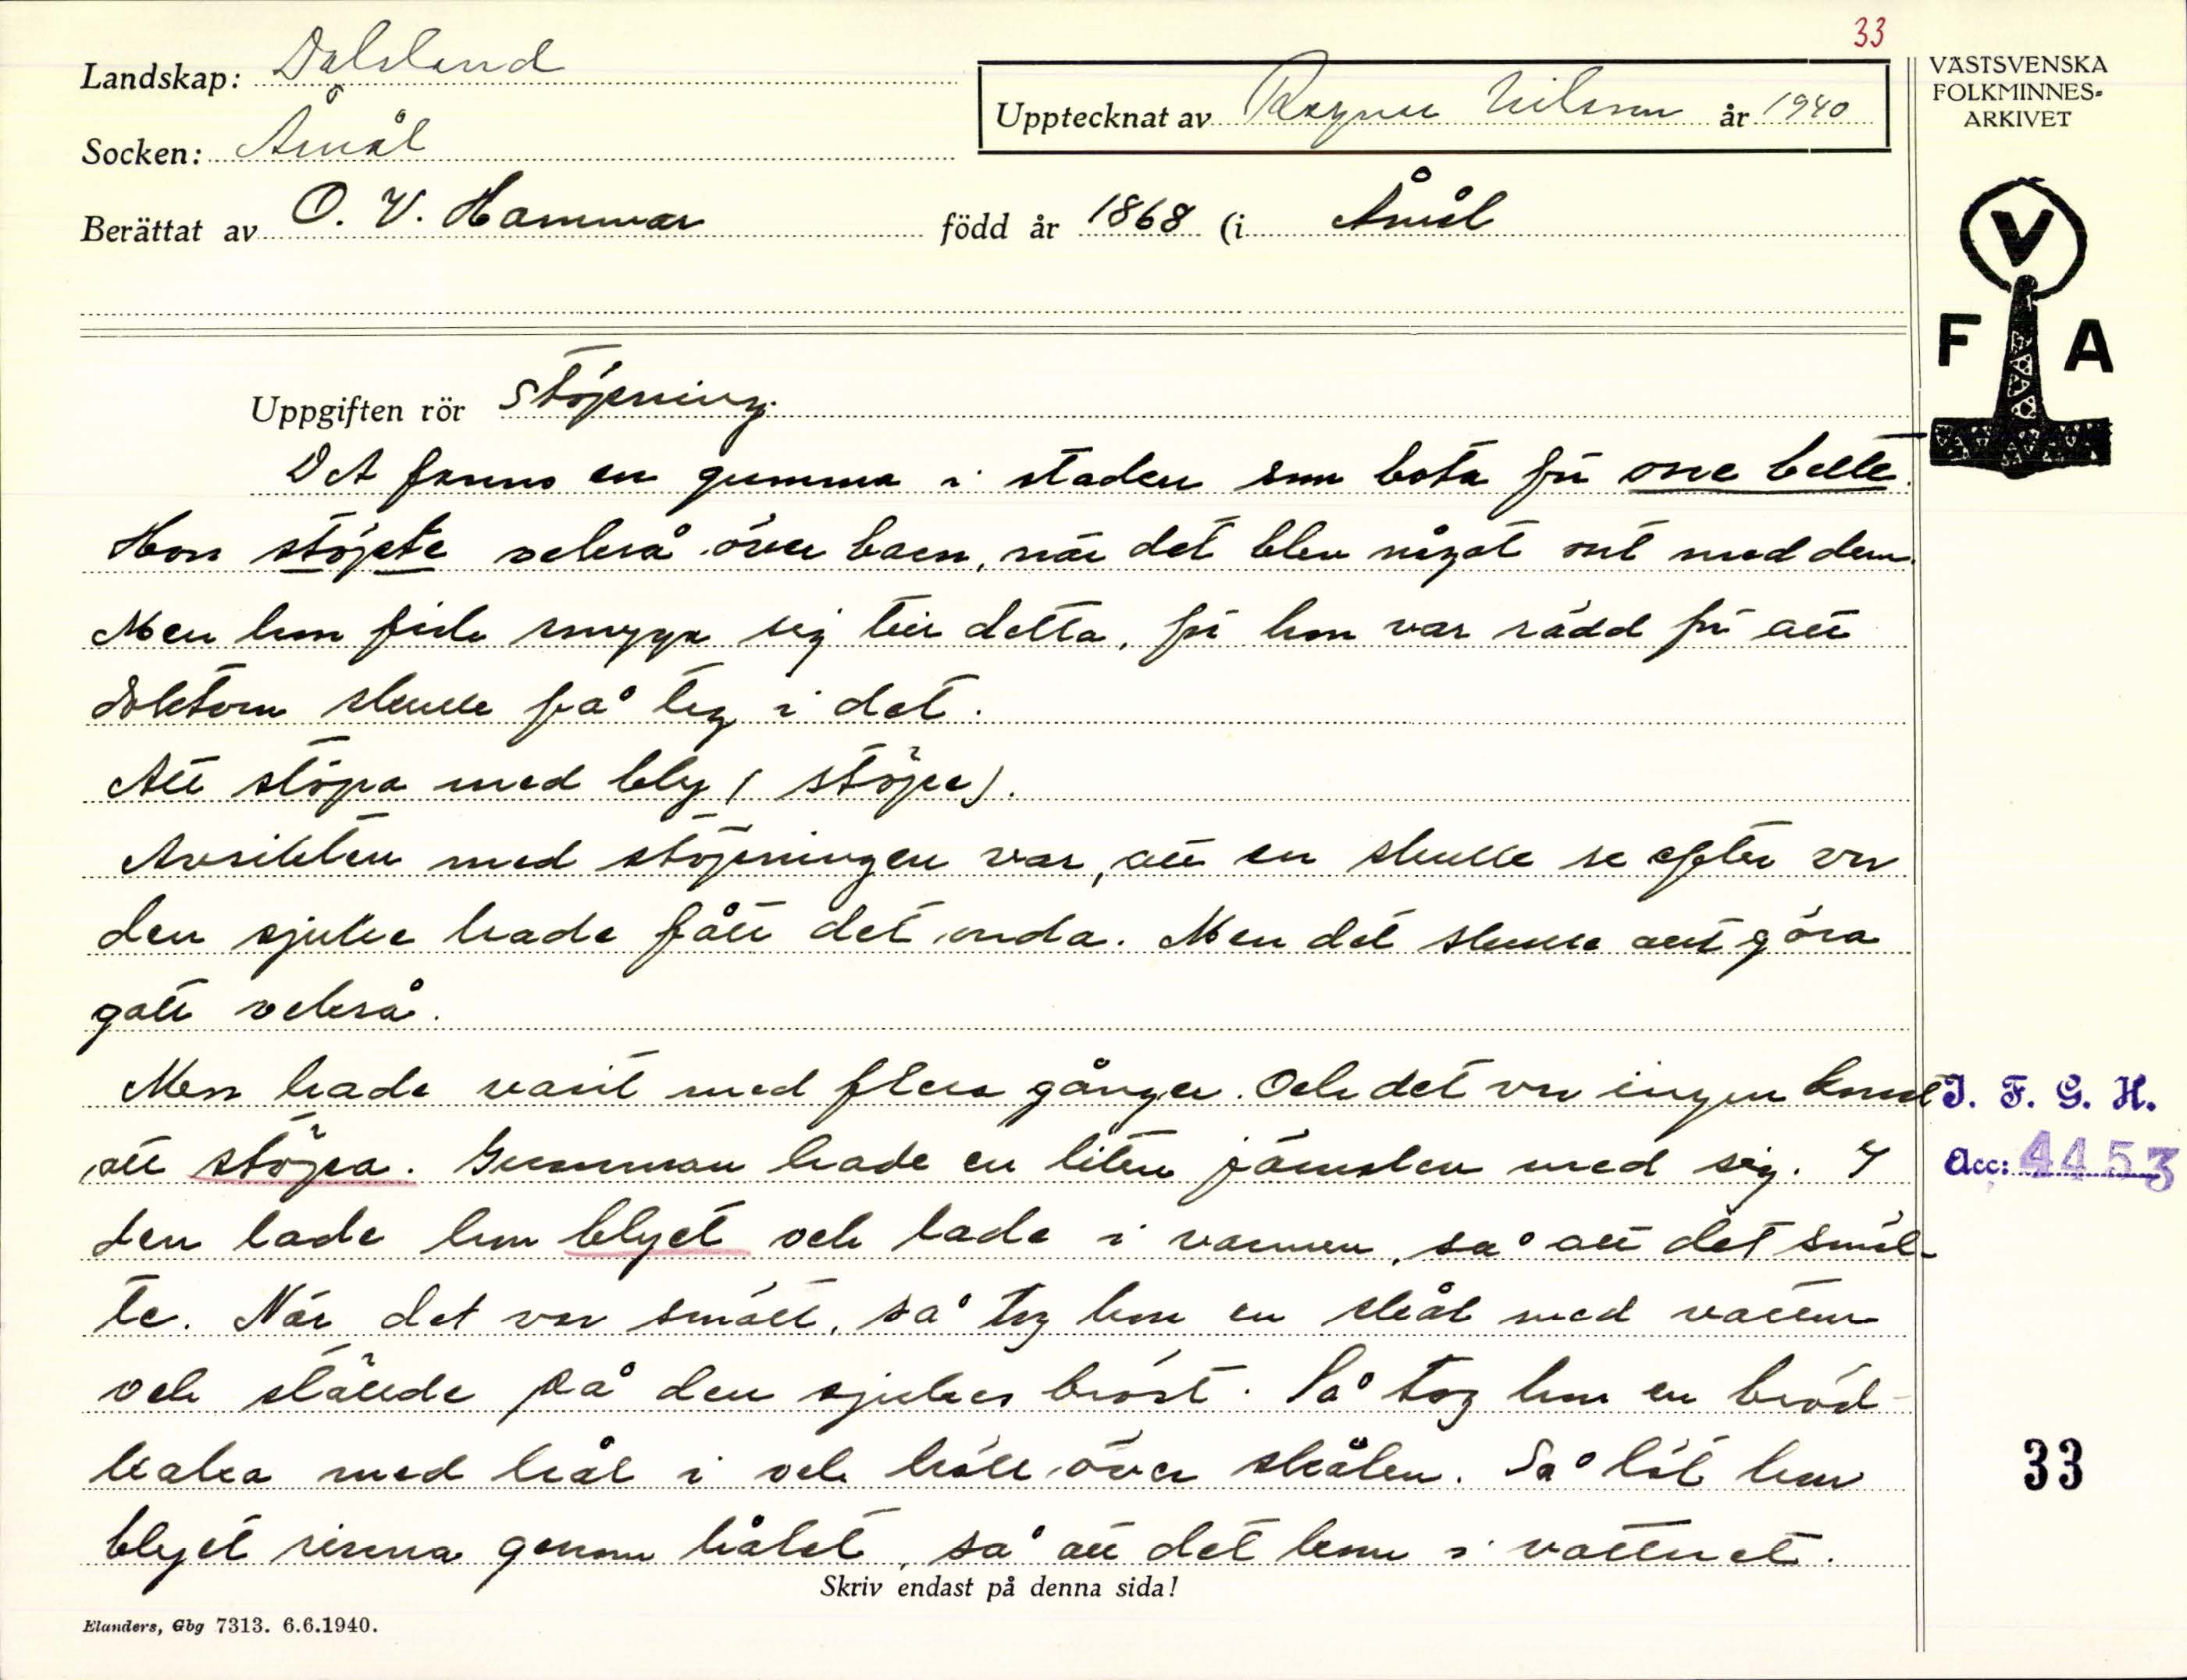 33
Landskap: Dalsland
Upptecknat av Ragnar Nilsson år 1940
VÄSTSVENSKA
FOLKMINNES-
ARKIVET
Socken: Åmål
Berättat av O. V. Hammar född år 1868 (i Åmål
V
F A
Uppgiften rör Stöpning.
Det fanns en gumma i staden som bota för onne bette.
Hon stöpte också över barn, när det blev något ont med dem.
Men hon fick smyga sig till detta, för hon var rädd för att
doktorn skulle få tag i det.
Att stöpa med bly (stöpe).
Avsikten med stöpningen var, att en skulle se efter var
den sjuke hade fått det onda. Men det skulle allt göra
gott också.
Men hade varit med flera gånger. Och det var ingen konst
att stöpa. Gumman hade en liten järnslev med sig. I
den lade hon blyet och lade i varmen, så att det smäl-
te. När det var smält, så tog hon en skål med vatten
och ställde på den sjukes bröst. Så tog hon en bröd-
kaka med hål i och höll över skålen. Så lät hon
blyet rinna genom hålet, så att det kom i vattnet.
I. F. G. H.
Acc: 4453
33
Skriv endast på denna sida!
Elanders, Gbg 7313. 6.6.1940.